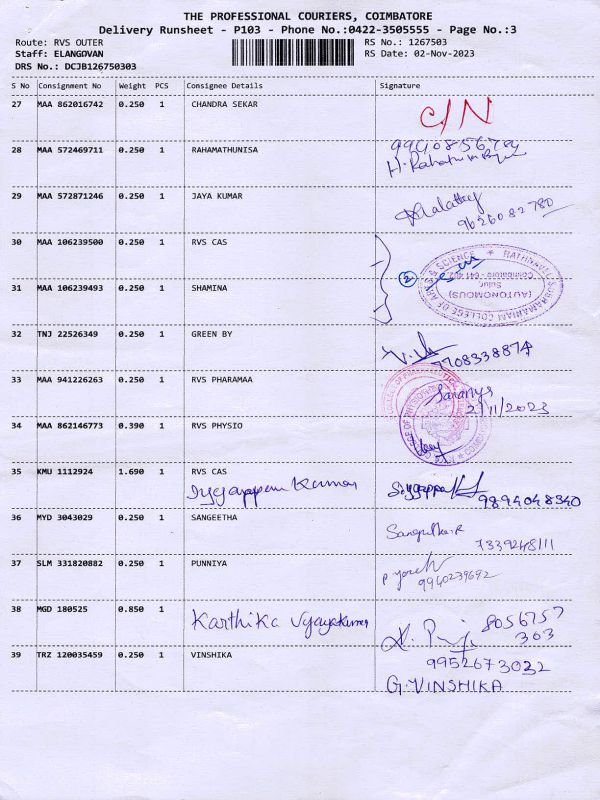 THE PROFESSIONAL COURIERS, COIMBATORE
Delivery Runsheet - P103 - Phone No.:0422-3505555 - Page No.:3
Route: RVS OUTER
RS No.: 1267503
Staff: ELANGOVAN
RS Date: 02-Nov-2023
DRS No.: DCJB126750303
S No Consignment No Weight PCS Consignee Details Signature
27 MAA 862016742 0.250 1 CHANDRA SEKAR
C/N
28 MAA 572469711 0.250 1 RAHAMATHUNISA
29 MAA 572871246 0.250 1 JAYA KUMAR
9626082780
30 MAA 106239500 0.250 1 RVS CAS
RATHNAVEL SUBRAMANIAM COLLEGE OF ARTS & SCIENCE
(AUTONOMOUS)
Sulur,
Coimbatore - 641 402
2
31 MAA 106239493 0.250 1 SHAMINA
32 TNJ 22526349 0.250 1 GREEN BY
7708338874
33 MAA 941226263 0.250 1 RVS PHARAMAA
Saranya
2/11/2023
34 MAA 862146773 0.390 1 RVS PHYSIO
35 KMU 1112924 1.690 1 RVS CAS
Iyyappan Kumar
9894048340
36 MYD 3043029 0.250 1 SANGEETHA
Sangeetha.R
7339248111
37 SLM 331820882 0.250 1 PUNNIYA
9940239692
38 MGD 180525 0.850 1
Karthika Vijayakumar
8056757
303
39 TRZ 120035459 0.250 1 VINSHIKA
9952673022
G.VINSHIKA